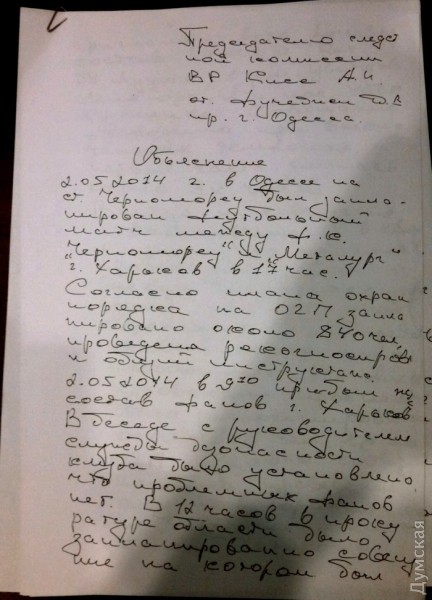 Председателю следст
ной комиссии
ВР Кисе А.И.
от. Фучеджи Д.В
пр. г. Одесса.
Объяснение
2.05.2014 г. в Одессе на
ст. Черноморец был запла-
нирован футбольный
матч между ф.к.
"Черноморец" и "Металург"
г. Харьков в 17 час.
Согласно плана охран
порядка на ОЗП запла
нировано около 840 чел,
проведена рекогносциров
и общий инструктаж.
2.05.2014 в 9 10 прибыл
состав фанов г. Харьков
В беседе с руководителем
службы безопасности
клуба было установлено,
что проблемных фанов
нет. В 12 часов в проку
ратуре области было
запланировано совещ
ние на котором был
Думская